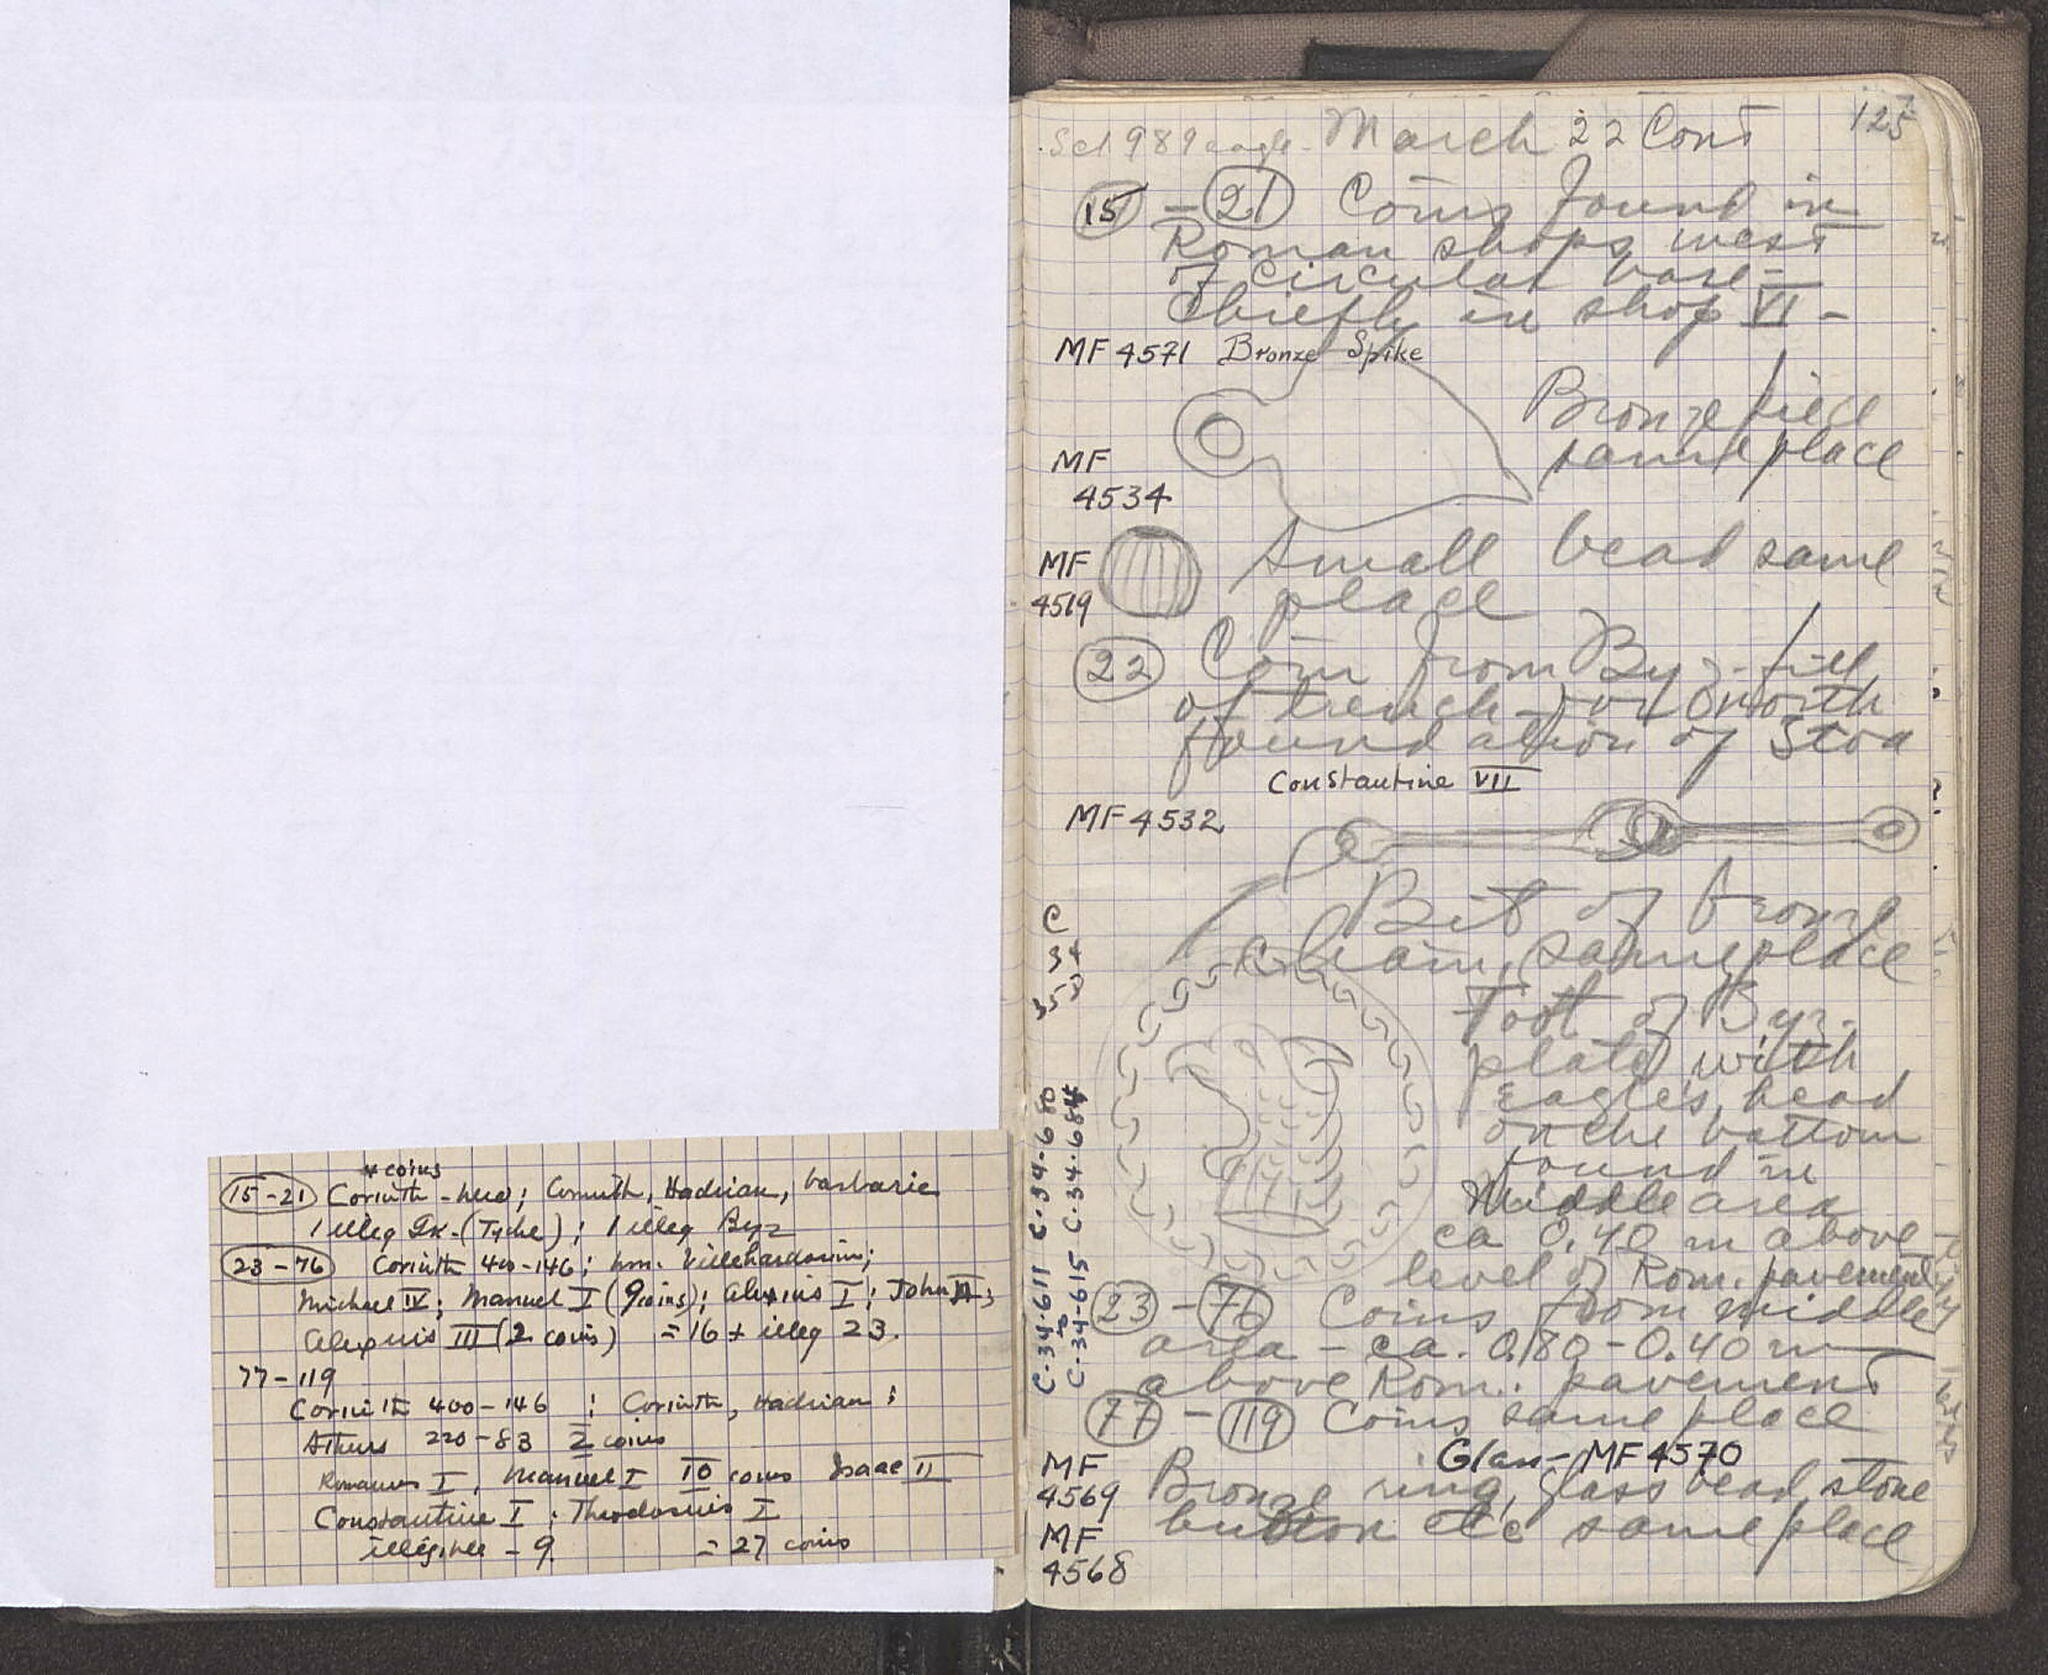 4 coins
15-21 Corinth - hero; Corinth, Hadrian, barbaric
1 illeg Gk. (Tyche); 1 illeg Byz
23-76 Corinth 400-146; Villehardouin;
Michael IV; Manuel I (9 coins); Alexius I; John II;
Alexius III (2 coins) = 16 + illeg 23.
77-119
Corinth 400-146 ; Corinth, Hadrian;
Athens 220-83 2 coins
Romanus I, Manuel I 10 coins Isaac II
Constantine I. Theodosius I
illegible - 9. = 27 coins
125
Scl 989 eagle - March 22 Cont
15 - 21 Coins found in
Roman shops west
of circular base -
Chiefly in shop VI -
MF 4571 Bronze Spike
Bronze piece
same place
MF
4534
MF
4519
Small bead same
place
22 Coin from Byz. fill
of trench for north
foundation of Stoa
Constantine VII
MF 4532
Bit of bronze
chain, same place
C
34
358
Foot of Byz.
plate with
eagle's head
on the bottom
found in
Middle area
ca 0.40 m above
level of Rom. pavement
C-34-611 C-34-680
C-34-615 C-34-684
23 - 76 Coins from middle
area - ca. 0.80 - 0.40 m
above Rom. pavement
77 - 119 Coins same place
Glass - MF 4570
MF
4569
Bronze ring, glass bead, stone
button etc same place
MF
4568